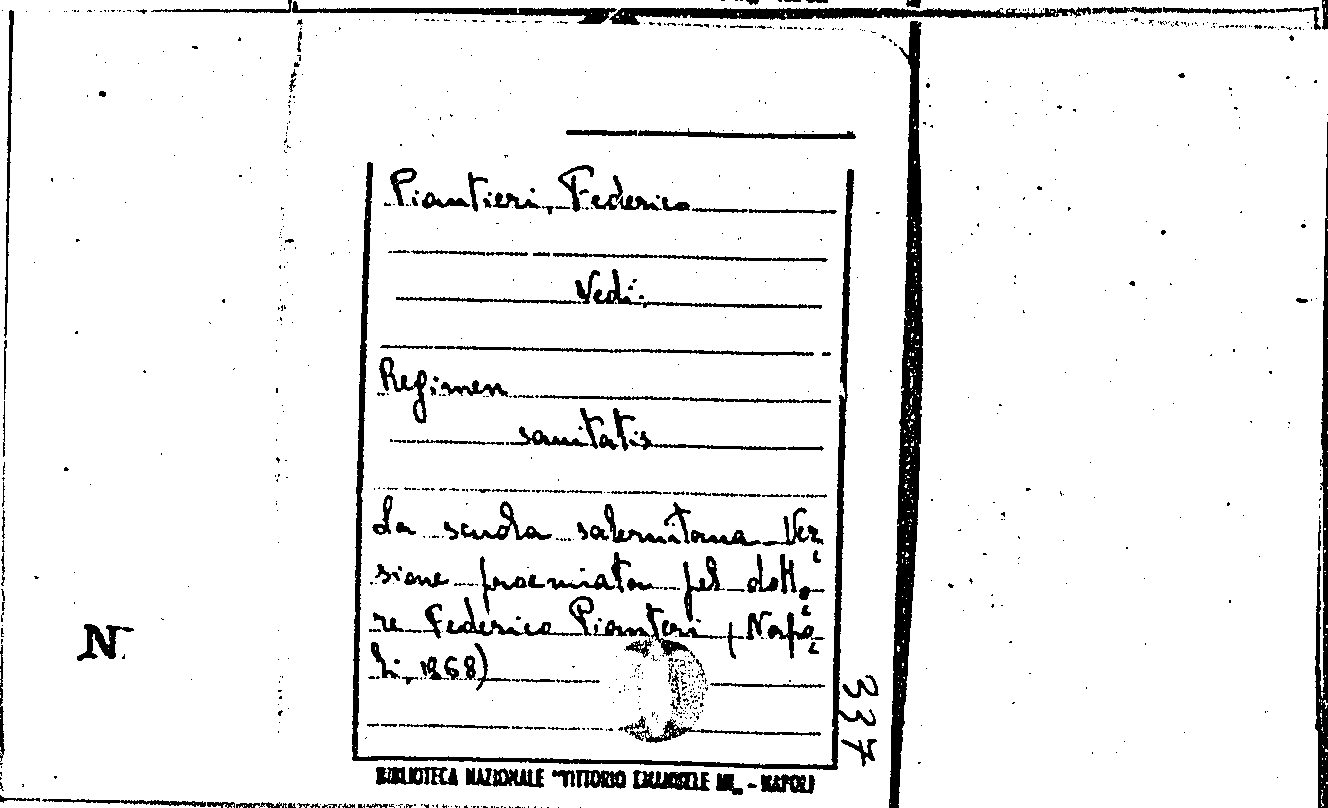 Piantieri, Federico
Vedi:
Regimen
sanitatis
La scuola salernitana Ver=
sione proemiata pel dotto=
re Federico Pianteri (Napo=
li, 1868)
N.
337
BIBLIOTECA NAZIONALE "VITTORIO EMANUELE III„ - NAPOLI